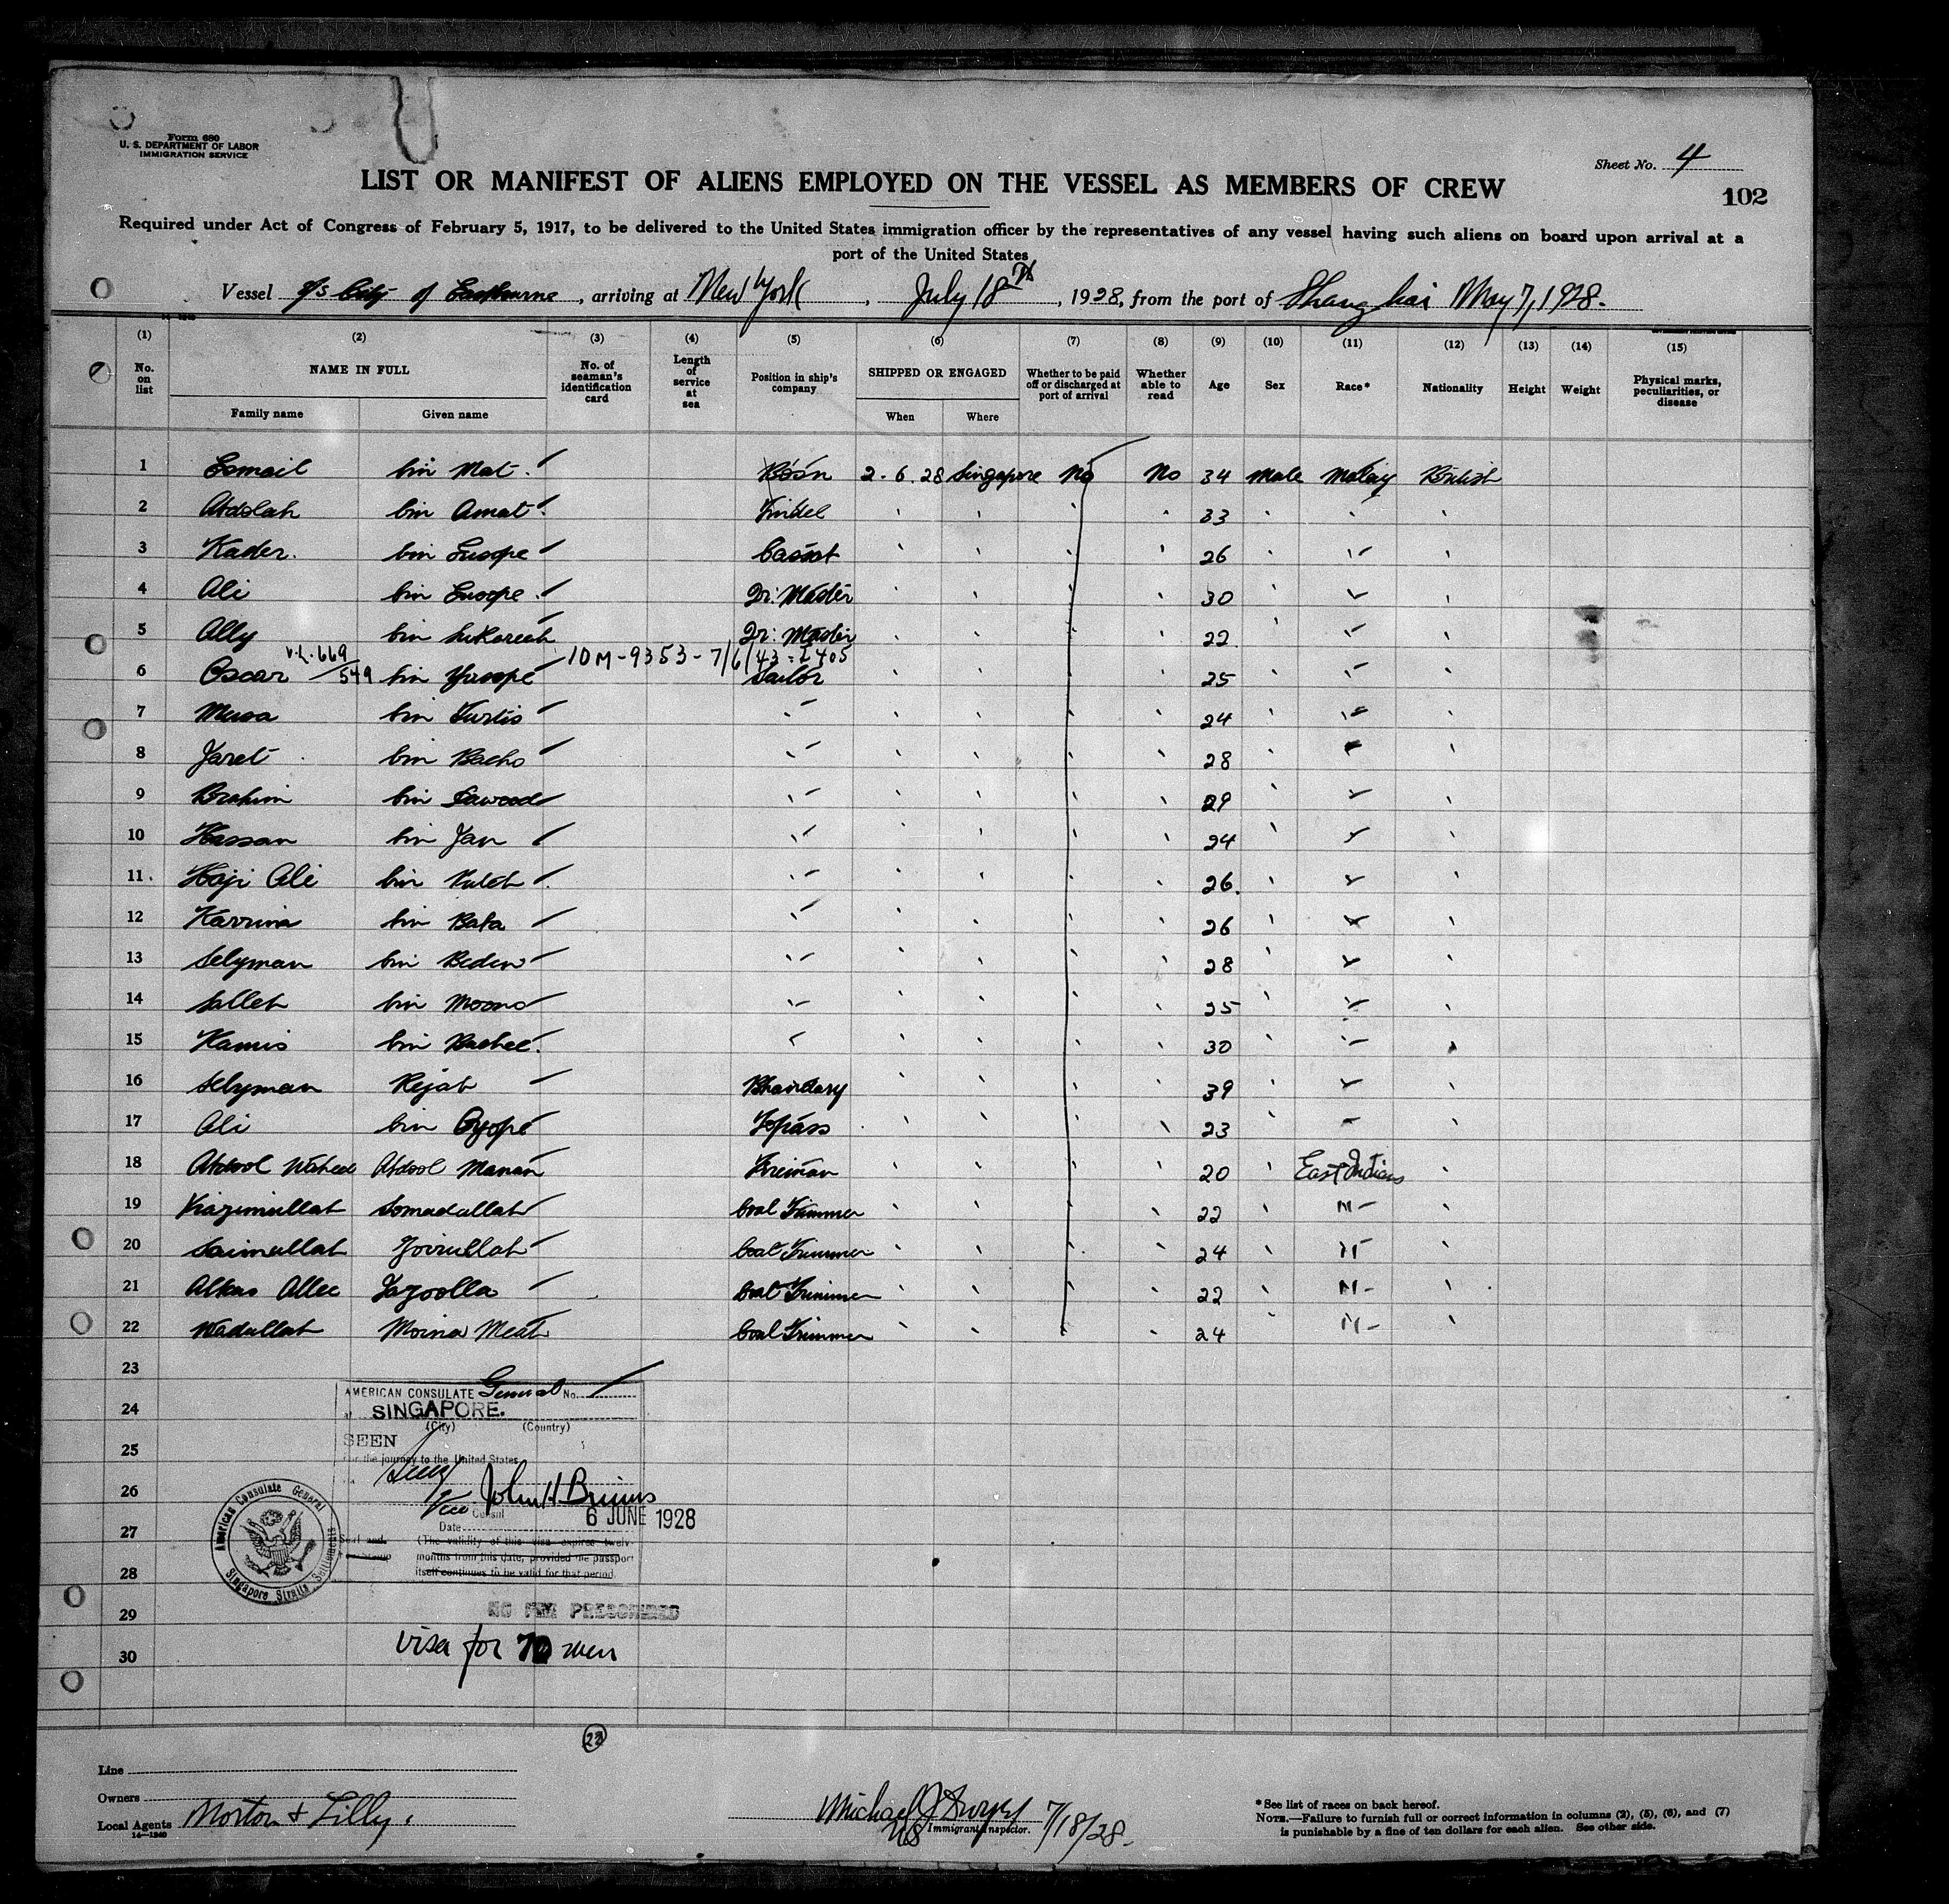 Form 680
U. S. DEPARTMENT OF LABOR
IMMIGRATION SERVICE
Sheet No. 4
LIST OR MANIFEST OF ALIENS EMPLOYED ON THE VESSEL AS MEMBERS OF CREW
102
Required under Act of Congress of February 5, 1917, to be delivered to the United States immigration officer by the representatives of any vessel having such aliens on board upon arrival at a
port of the United States
Vessel S/S City of Eastbourne, arriving at New York, July 18th, 1928, from the port of Shanghai May 7, 1928.
(1) (2) (3) (4) (5) (6) (7) (8) (9) (10) (11) (12) (13) (14) (15)
No. on list NAME IN FULL No. of seaman's identification card Length of service at sea Position in ship's company SHIPPED OR ENGAGED Whether to be paid off or discharged at port of arrival Whether able to read Age Sex Race* Nationality Height Weight Physical marks, peculiarities, or disease
Family name Given name When Where
1 Esmail bin Mat Bosn 2.6.28 Singapore No No 34 Male Malay British
2 Abdolah bin Amat Tindel 33
3 Kader bin Eusope Cassat 26
4 Ali bin Eusope Qr: Master 30
5 Ally bin Sukareah Qr: Master 22
V.L. 669/549 10M-9353-7/6/43 = I 405
6 Oscar bin Yusope Sailor 25
7 Musa bin Turtis 24
8 Jaret bin Bacho 28
9 Brahim bin Dawood 29
10 Hassan bin Jan 24
11 Haji Ali bin Puteh 26
12 Karrima bin Bata 26
13 Selyman bin Bedin 28
14 Salleh bin Moono 25
15 Kamis bin Bachee 30
16 Selyman Rejab Bhandary 39
17 Ali bin Ayope Topass 23
18 Abdool Waheed Abdool Manan Fireman 20 East Indians
19 Kiazimullah Somadullah Coal Trimmer 22 " -
20 Saimullah Jovirullah Coal Trimmer 24 "
21 Alkas Allee Fazoolla Coal Trimmer 22 " -
22 Wadullah Moina Meah Coal Trimmer 24 " -
23
24
25
26
27
28
29
30
AMERICAN CONSULATE General No.
at SINGAPORE.
(City) (Country)
SEEN
For the journey to the United States
John H Bruins
Vice Consul
Date 6 JUNE 1928
Seal and
(The validity of this visa expires twelve
months from this date, provided the passport
itself continues to be valid for that period.
American Consulate General Singapore Straits Settlements
NO FEE PRESCRIBED
visa for 70 men
22
Line
Owners
Local Agents Norton & Lilly.
14—1240
Michael J Dwyer 7/18/28.
US Immigrant Inspector.
* See list of races on back hereof.
NOTE.—Failure to furnish full or correct information in columns (2), (5), (6), and (7)
is punishable by a fine of ten dollars for each alien. See other side.